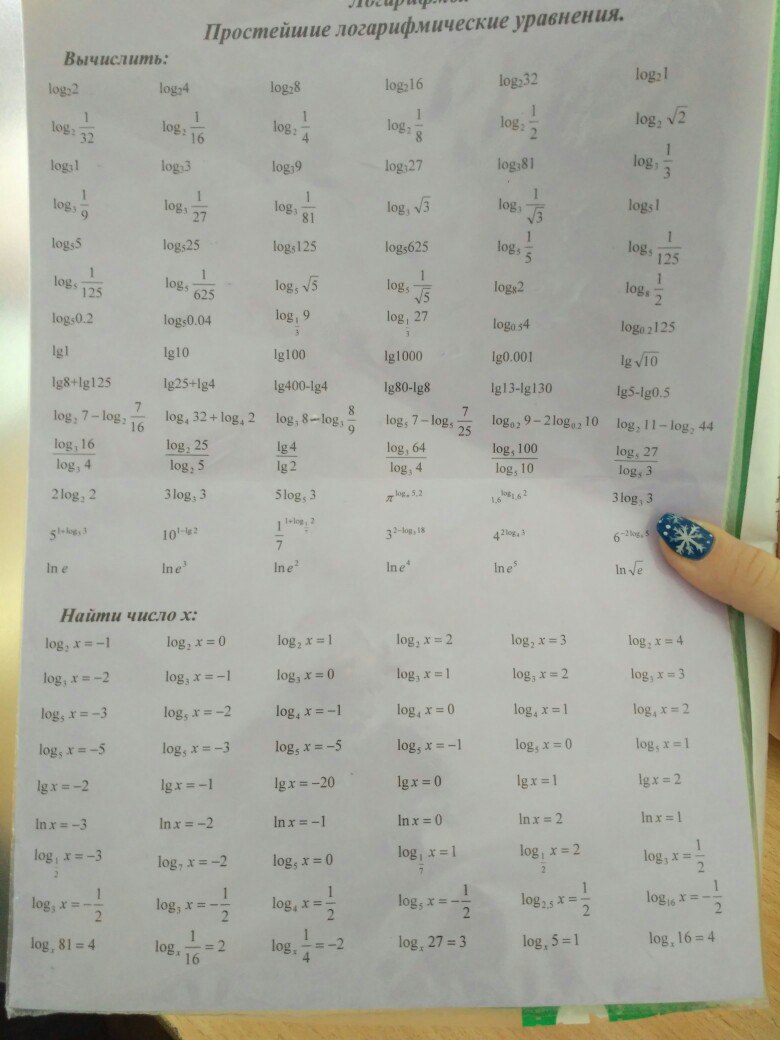 Логарифмы
Простейшие логарифмические уравнения.
Вычислить:
log₂2 log₂4 log₂8 log₂16 log₂32 log₂1
log₂ 1/32 log₂ 1/16 log₂ 1/4 log₂ 1/8 log₂ 1/2 log₂ √2
log₃1 log₃3 log₃9 log₃27 log₃81 log₃ 1/3
log₃ 1/9 log₃ 1/27 log₃ 1/81 log₃ √3 log₃ 1/√3 log₅1
log₅5 log₅25 log₅125 log₅625 log₅ 1/5 log₅ 1/125
log₅ 1/125 log₅ 1/625 log₅ √5 log₅ 1/√5 log₈2 log₈ 1/2
log₅0.2 log₅0.04 log_{1/3} 9 log_{1/3} 27 log₀.₅4 log₀.₂125
lg1 lg10 lg100 lg1000 lg0.001 lg √10
lg8+lg125 lg25+lg4 lg400-lg4 lg80-lg8 lg13-lg130 lg5-lg0.5
log₂ 7 − log₂ 7/16 log₄ 32 + log₄ 2 log₃ 8 − log₃ 8/9 log₅ 7 − log₅ 7/25 log₀.₂ 9 − 2 log₀.₂ 10 log₂ 11 − log₂ 44
log₃ 16 / log₃ 4 log₂ 25 / log₂ 5 lg 4 / lg 2 log₃ 64 / log₃ 4 log₅ 100 / log₅ 10 log₅ 27 / log₅ 3
2 log₂ 2 3 log₃ 3 5 log₅ 3 π^{log_π 5,2} 1,6^{log_{1,6} 2} 3 log₃ 3
5^{1+log₅ 3} 10^{1−lg 2} 1/7^{1+log 2} 3^{2−log₃ 18} 4^{2 log₄ 3} 6^{−2 log₆ 5}
ln e ln e³ ln e² ln e⁴ ln e⁵ ln √e
Найти число x:
log₂ x = −1 log₂ x = 0 log₂ x = 1 log₂ x = 2 log₂ x = 3 log₂ x = 4
log₃ x = −2 log₃ x = −1 log₃ x = 0 log₃ x = 1 log₃ x = 2 log₃ x = 3
log₅ x = −3 log₅ x = −2 log₄ x = −1 log₄ x = 0 log₄ x = 1 log₄ x = 2
log₅ x = −5 log₅ x = −3 log₅ x = −5 log₅ x = −1 log₅ x = 0 log₅ x = 1
lg x = −2 lg x = −1 lg x = −20 lg x = 0 lg x = 1 lg x = 2
ln x = −3 ln x = −2 ln x = −1 ln x = 0 ln x = 2 ln x = 1
log_{1/2} x = −3 log₇ x = −2 log₅ x = 0 log_{1/7} x = 1 log_{1/2} x = 2 log₃ x = 1/2
log₃ x = −1/2 log₃ x = −1/2 log₄ x = 1/2 log₅ x = −1/2 log₂,₅ x = 1/2 log₁₆ x = −1/2
logₓ 81 = 4 logₓ 1/16 = 2 logₓ 1/4 = −2 logₓ 27 = 3 logₓ 5 = 1 logₓ 16 = 4